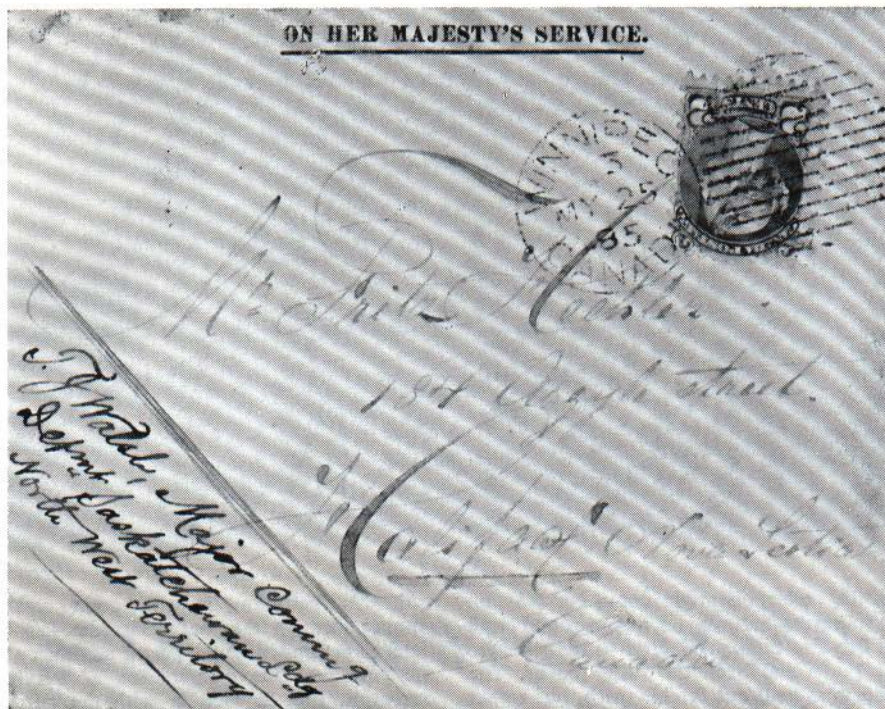 ON HER MAJESTY'S SERVICE.
WINNIPEG
MY 25
85
CANADA
Mr
184 Argyle Street.
Halifax Nova Scotia
Canada
T. J. Walsh, Major Comm'g
Detmt. Saskatchewan Ldg
North West Territory